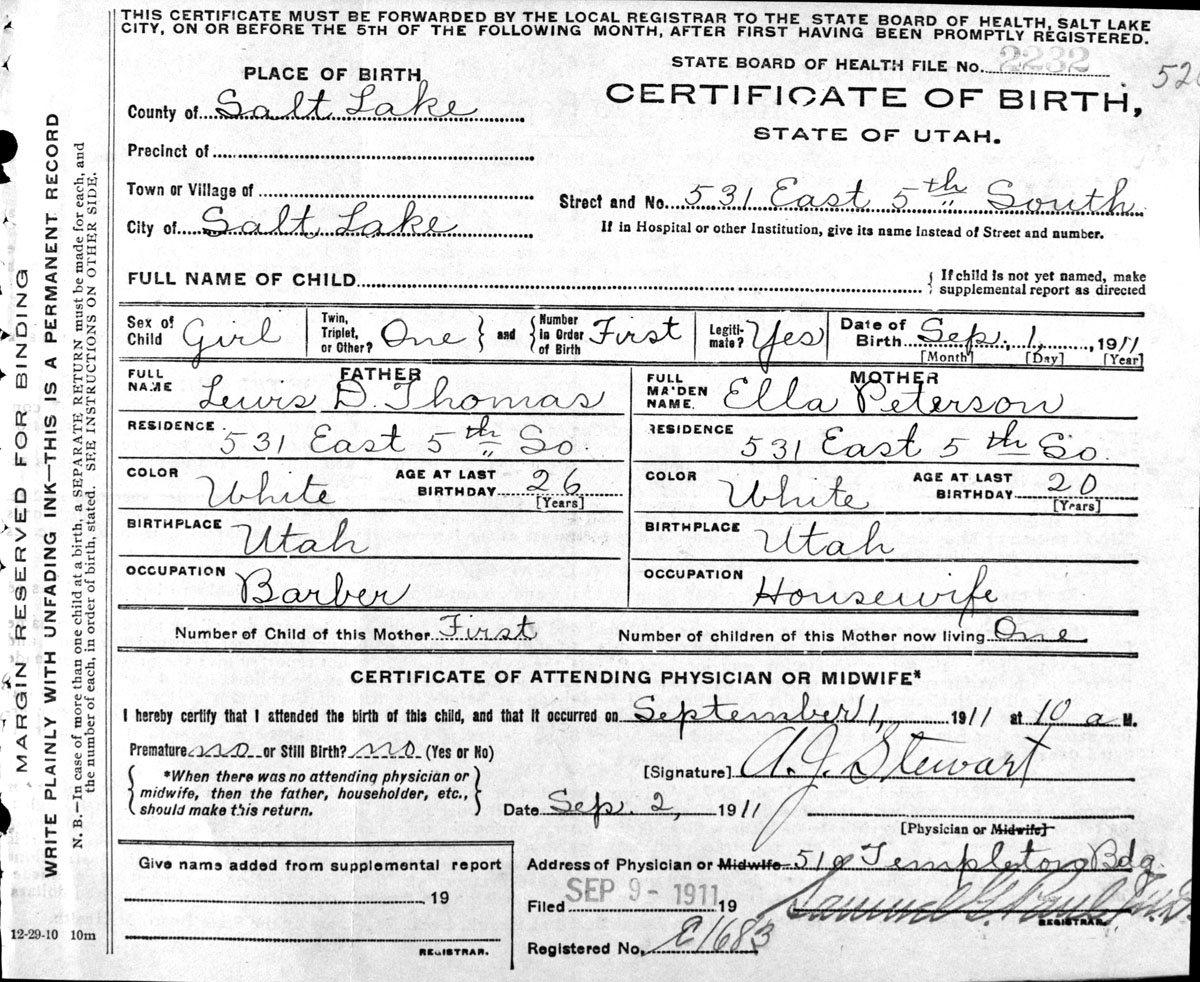 THIS CERTIFICATE MUST BE FORWARDED BY THE LOCAL REGISTRAR TO THE STATE BOARD OF HEALTH, SALT LAKE
CITY, ON OR BEFORE THE 5TH OF THE FOLLOWING MONTH, AFTER FIRST HAVING BEEN PROMPTLY REGISTERED.
STATE BOARD OF HEALTH FILE No. 2232
CERTIFICATE OF BIRTH,
STATE OF UTAH.
PLACE OF BIRTH
County of Salt Lake
Precinct of
Town or Village of
City of Salt Lake
Street and No. 531 East 5th South
If in Hospital or other Institution, give its name instead of Street and number.
FULL NAME OF CHILD
If child is not yet named, make
supplemental report as directed
Sex of Child Girl
Twin, Triplet, or Other? One and Number in Order of Birth First
Legiti-mate? Yes
Date of Birth Sep. 1, 1911
[Month] [Day] [Year]
FATHER
FULL NAME Lewis D. Thomas
RESIDENCE 531 East 5th So.
COLOR White AGE AT LAST BIRTHDAY 26 [Years]
BIRTHPLACE Utah
OCCUPATION Barber
MOTHER
FULL MAIDEN NAME. Ella Peterson
RESIDENCE 531 East 5th So
COLOR White AGE AT LAST BIRTHDAY 20 [Years]
BIRTHPLACE Utah
OCCUPATION Housewife
Number of Child of this Mother First Number of children of this Mother now living One
CERTIFICATE OF ATTENDING PHYSICIAN OR MIDWIFE*
I hereby certify that I attended the birth of this child, and that it occurred on September 1, 1911 at 10 a M.
Premature no or Still Birth? no (Yes or No)
*When there was no attending physician or
midwife, then the father, householder, etc.,
should make this return.
[Signature] A. J. Stewart
Date Sep. 2, 1911
[Physician or Midwife]
Give name added from supplemental report
19
REGISTRAR.
Address of Physician or Midwife Templeton Bdg.
Filed SEP 9 - 1911 19
REGISTRAR.
Registered No. E1683
12-29-10 10m
MARGIN RESERVED FOR BINDING
WRITE PLAINLY WITH UNFADING INK—THIS IS A PERMANENT RECORD
N. B.—In case of more than one child at a birth, a SEPARATE RETURN must be made for each, and
the number of each, in order of birth, stated. SEE INSTRUCTIONS ON OTHER SIDE.